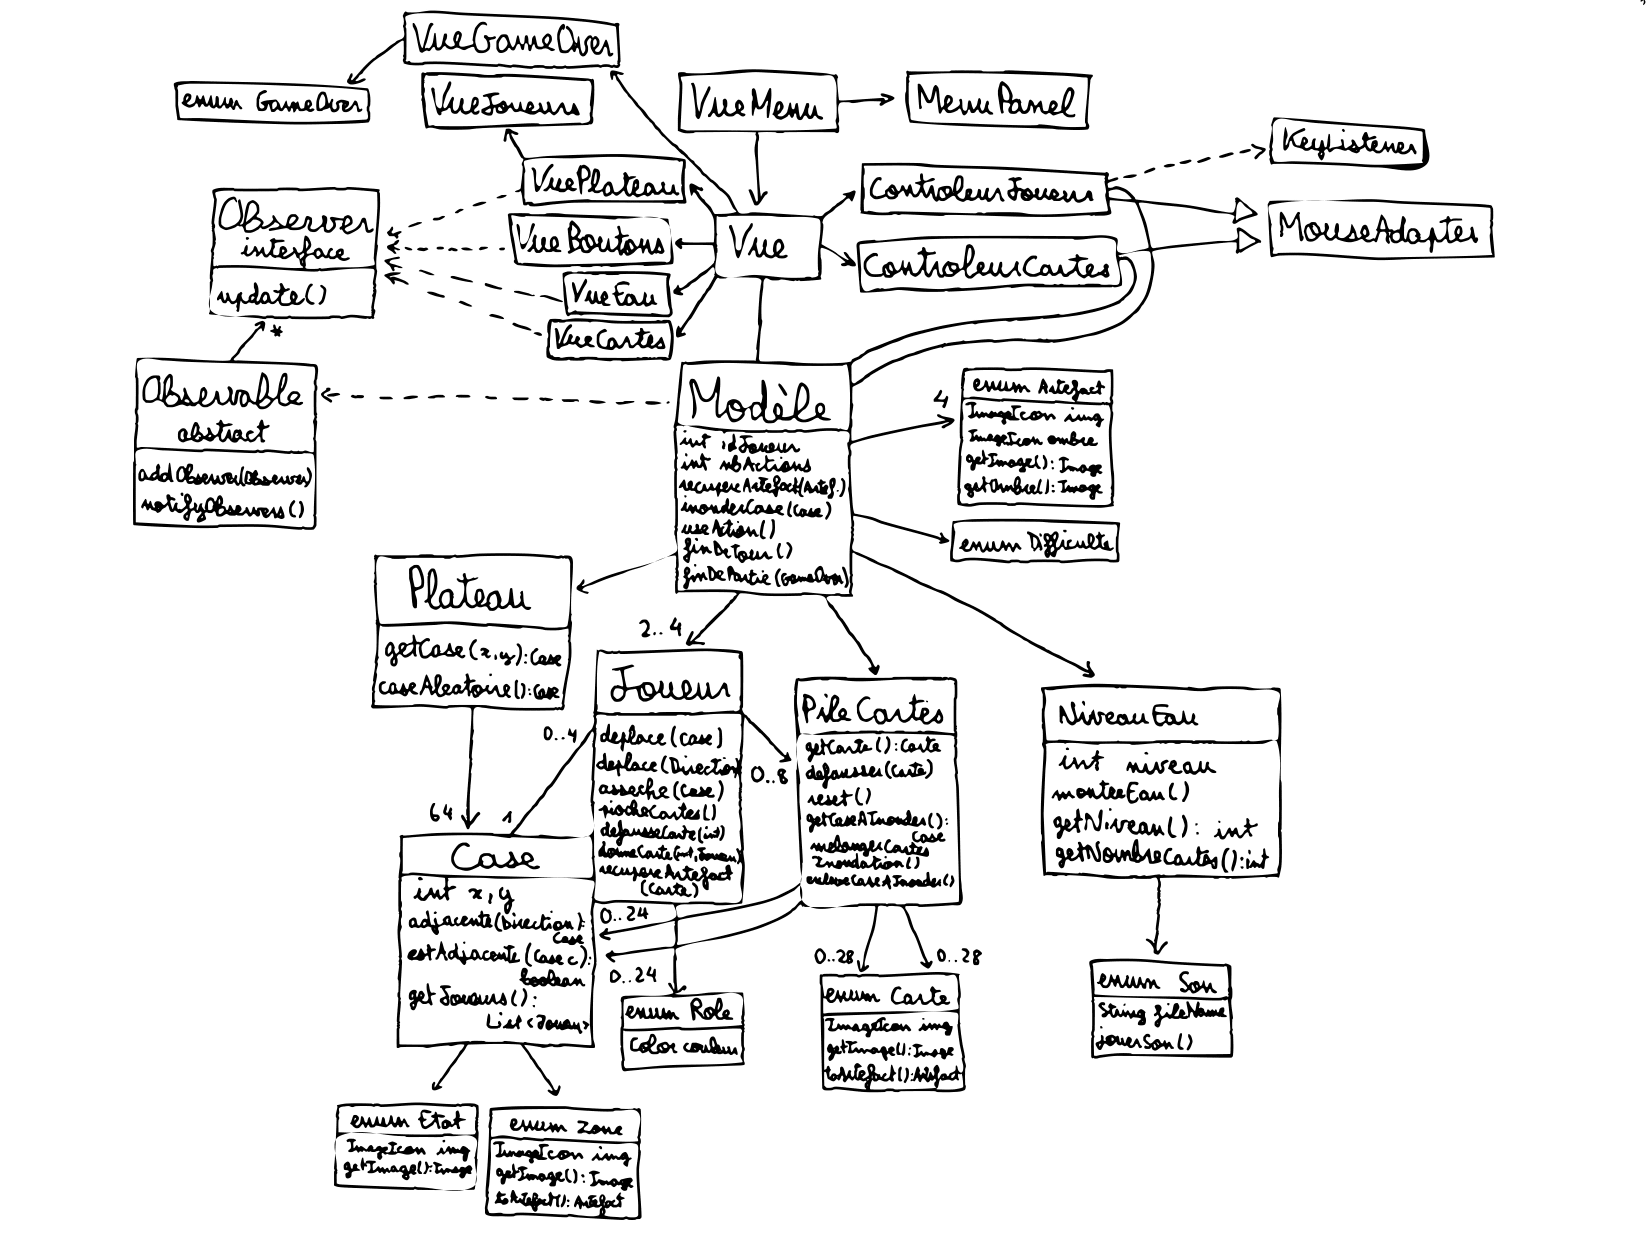 VueGameOver
enum GameOver
VueJoueurs
VueMenu
MenuPanel
KeyListener
VuePlateau
ControleurJoueurs
Observer
interface
update()
VueBoutons
Vue
MouseAdapter
ControleurCartes
VueEau
VueCartes
*
Observable
abstract
addObserver(Observer)
notifyObservers()
Modèle
int idJoueur
int nbActions
recupereArtefact(Artef.)
inonderCase(Case)
useAction()
finDeTour()
finDePartie(GameOver)
4
enum Artefact
ImageIcon img
ImageIcon ombre
getImage(): Image
getOmbre(): Image
enum Difficulte
Plateau
getCase(x,y): Case
caseAleatoire(): Case
2..4
Joueur
deplace(Case)
deplace(Direction)
asseche(Case)
piocheCartes()
defausseCarte(int)
donneCarte(int, Joueur)
recupereArtefact
(Carte)
0..4
1
64
0..8
PileCartes
getCarte(): Carte
defausser(Carte)
reset()
getCaseAInonder():
Case
melangerCartes
Inondation()
enleveCaseAInonder()
NiveauEau
int niveau
monteeEau()
getNiveau(): int
getNombreCartes(): int
Case
int x, y
adjacente(Direction):
Case
estAdjacente(Case c):
boolean
getJoueurs():
List<Joueur>
0..24
0..24
enum Role
Color couleur
0..28
0..28
enum Carte
ImageIcon img
getImage(): Image
toArtefact(): Artefact
enum Son
String fileName
jouerSon()
enum Etat
ImageIcon img
getImage(): Image
enum Zone
ImageIcon img
getImage(): Image
toArtefact(): Artefact